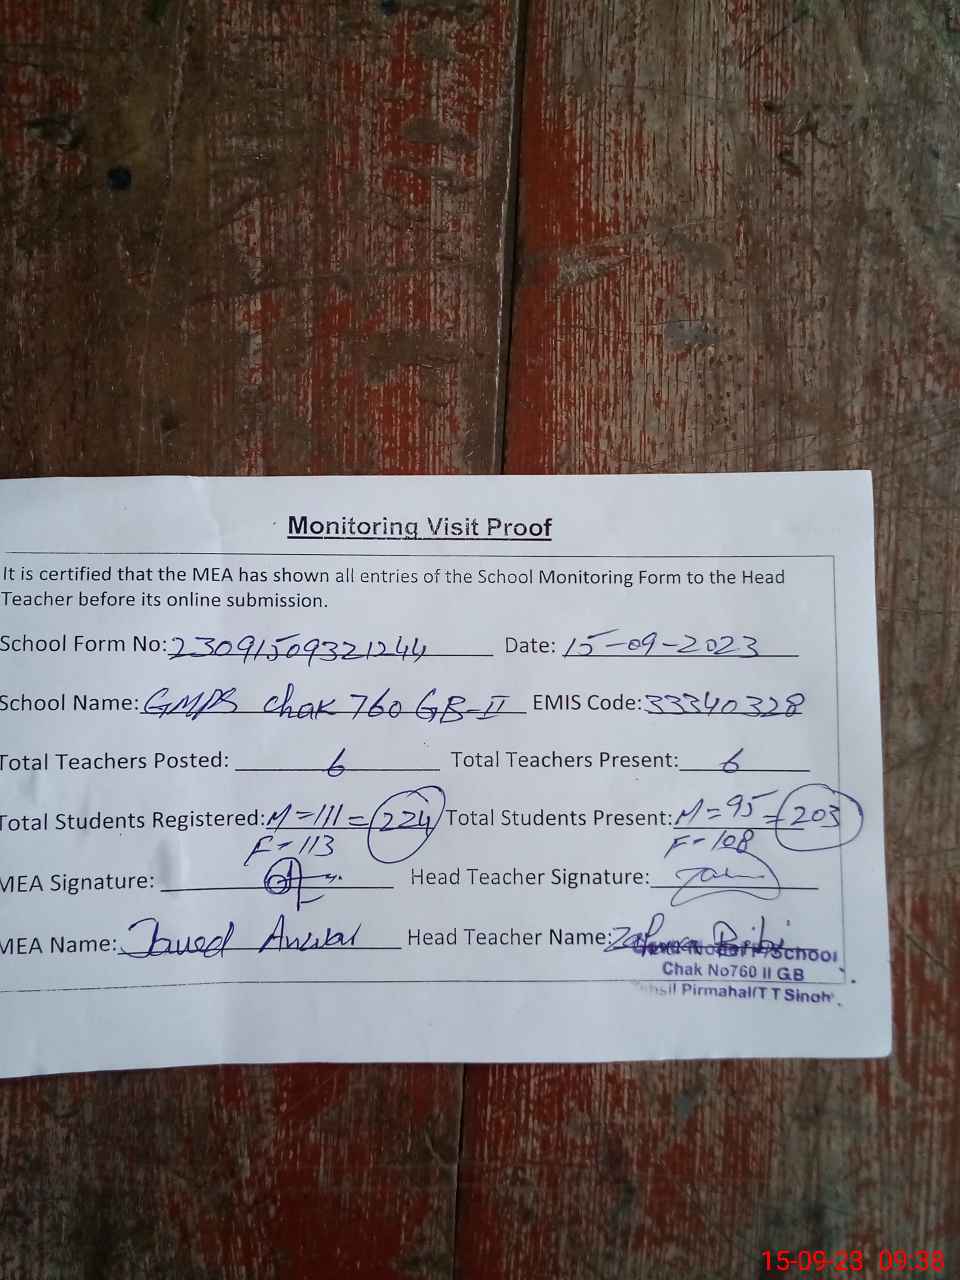 Monitoring Visit Proof
It is certified that the MEA has shown all entries of the School Monitoring Form to the Head
Teacher before its online submission.
School Form No: 23091509321244 Date: 15-09-2023
School Name: GMPS Chak 760 GB-II EMIS Code: 33340328
Total Teachers Posted: 6 Total Teachers Present: 6
Total Students Registered: M=111 = 224 Total Students Present: M=95 = 203
F=113 F=108
MEA Signature: Head Teacher Signature:
MEA Name: Javed Anwar Head Teacher Name: Bibi
School
Chak No760 II GB
Pirmahal(T T Singh
15-09-23 09:38